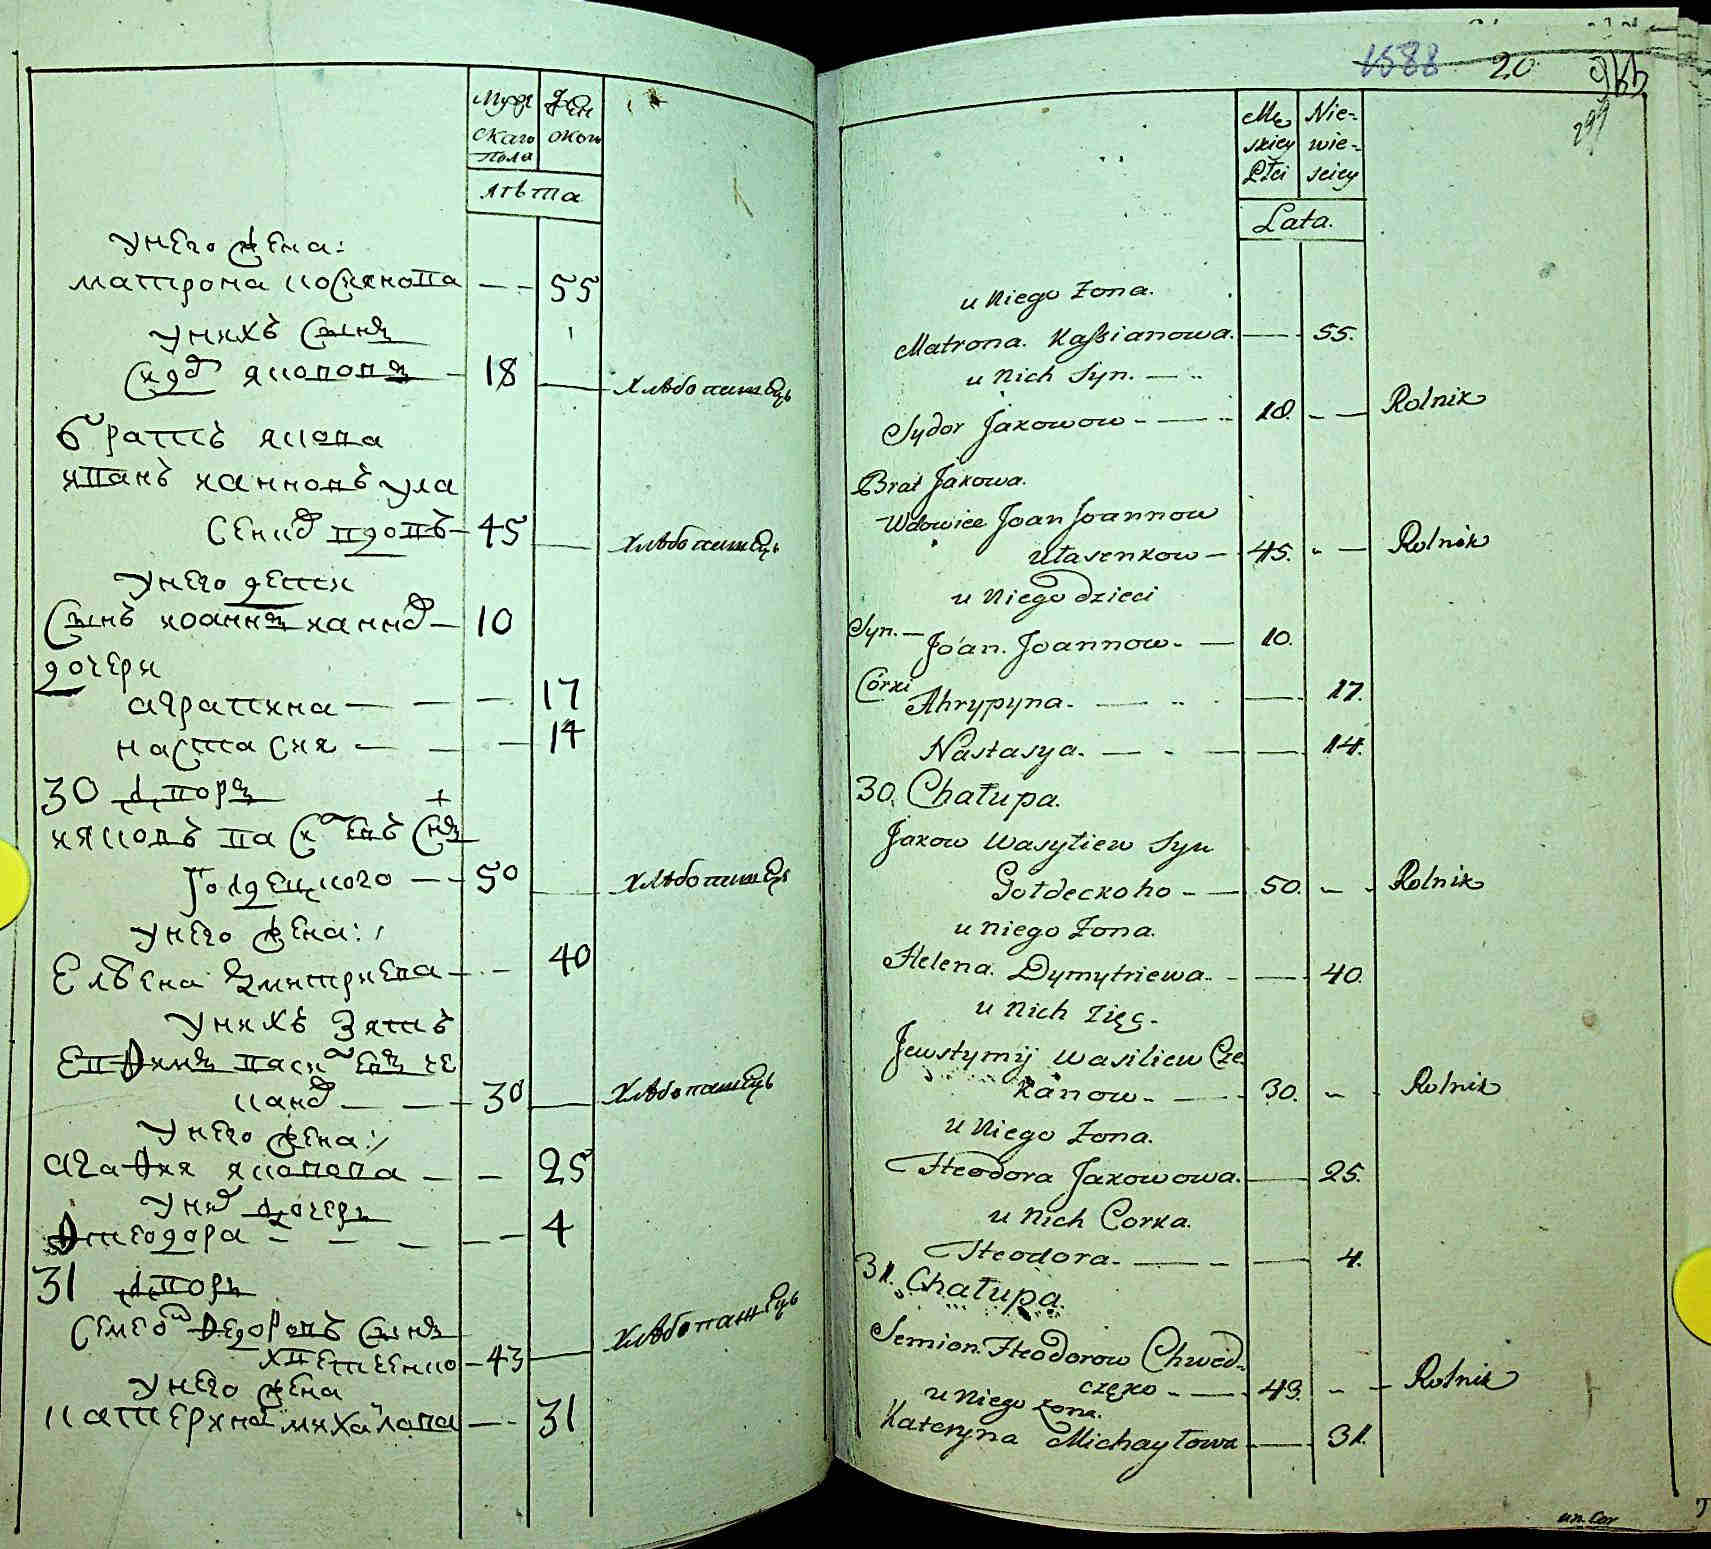 Мужескаго пола
Женского
лѣта
У него жена:
Матрона Косиянова — — 55
У них сынъ
Сидор Яковов — 18 — Хлѣбопашецъ
братъ Якова
Иванъ Ианнов Ула
сенко вдовъ — 45 — Хлѣбопашецъ
У него дети
Сынъ Иоаннъ Ианно — 10
дочери
Аграпина — — — 17
Настасия — — — 14
30 дворъ
Ияковъ Василевъ сынъ
Голдецкого — 50 — Хлѣбопашецъ
У него жена:
Елѣена Дмитриева — — 40
У нихъ зять
Евфимъ Василевъ Че
кано — — 30 — Хлѣбопашецъ
У него жена:
Агафия Яковова — — 25
У них дочеръ
Фтеодора — — — — 4
31 дворъ
Семеон Федоровъ сынъ
Хветченко — 43 — Хлѣбопашецъ
У него жена
Катерина Михайлова — — 31
1588 20
299
Męskiey Płci
Niewiesciey
Lata.
u Niego Żona.
Matrona. Kaßianowa. — 55.
u Nich Syn. —
Sydor Jakowow — 18. — Rolnik
Brat Jakowa.
Wdowiec Joan Joannow
Ułasenkow — 45. — Rolnik
u Niego dzieci
Syn. — Joan. Joannow. — 10.
Córki Ahrypyna. — — 17.
Nastasya. — — — 14.
30. Chałupa.
Jakow Wasyliew Syn
Gołdeckoho — 50. — Rolnik
u niego Żona.
Helena. Dymytriewa. — 40.
u Nich Zięć.
Jewstymij Wasiliew Cze
kanow. — 30. — Rolnik
u Niego Żona.
Hteodora Jakowowa. — 25.
u Nich Corka.
Hteodora. — — 4.
31. Chałupa.
Semion. Hteodorow Chwed-
częko — 43. — Rolnik
u Niego żona.
Kateryna Michayłowa — 31.